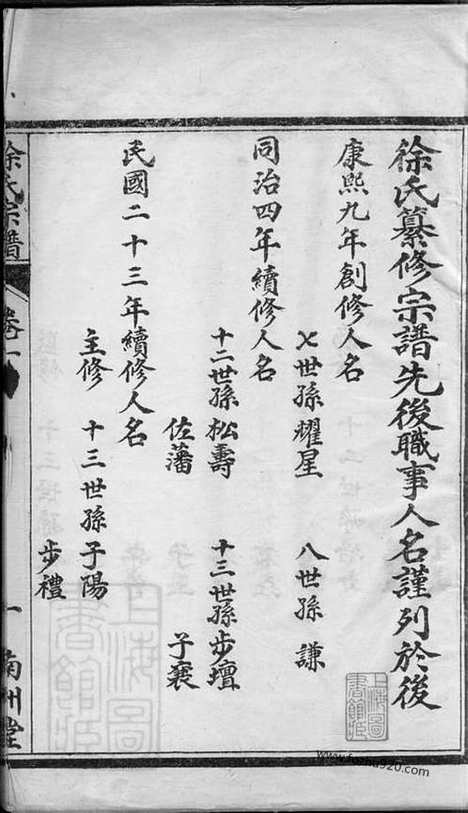 徐氏纂修宗譜先後職事人名謹列於後
康熙九年創修人名
七世孫耀星 八世孫謙
同治四年續修人名
十二世孫松壽 十三世孫步壇
佐藩 子襄
民國二十三年續修人名
主修 十三世孫子陽
步禮
徐氏宗譜 卷一 一 南州堂
上海圖書館藏
www.fozhu920.com